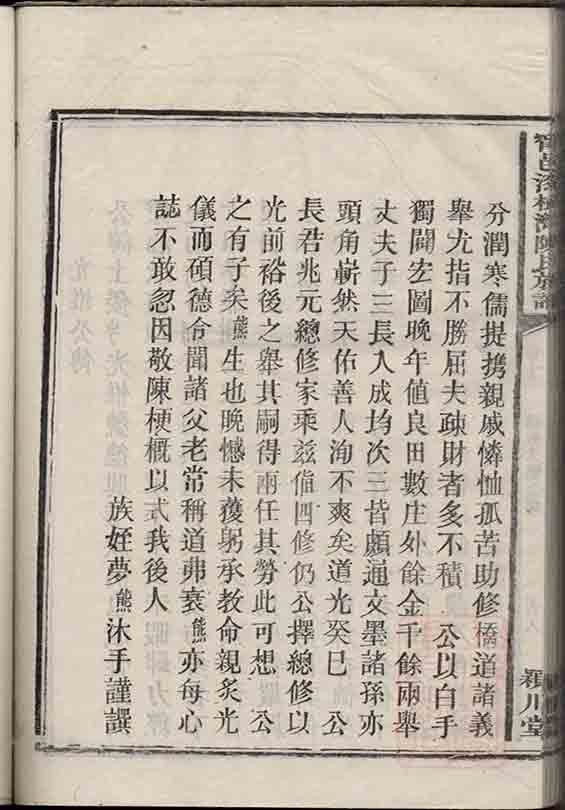 分潤寒儒提携親戚憐恤孤苦助修橋道諸義
舉尤指不勝屈夫疎財者多不積 公以白手
獨闢宏圖晚年值良田數庄外餘金千餘兩舉
丈夫子三長入成均次三皆頗通文墨諸孫亦
頭角嶄然天佑善人洵不爽矣道光癸巳 公
長君兆元總修家乘兹偹四修仍公擇總修以
光前裕後之舉其嗣得兩任其勞此可想 公
之有子矣熊生也晚憾未獲躬承教命親炙光
儀而碩德令聞諸父老常稱道弗衰熊亦每心
誌不敢忽因敬陳梗概以式我後人
族姪夢熊沐手謹譔
邑 陳氏族譜
穎川堂